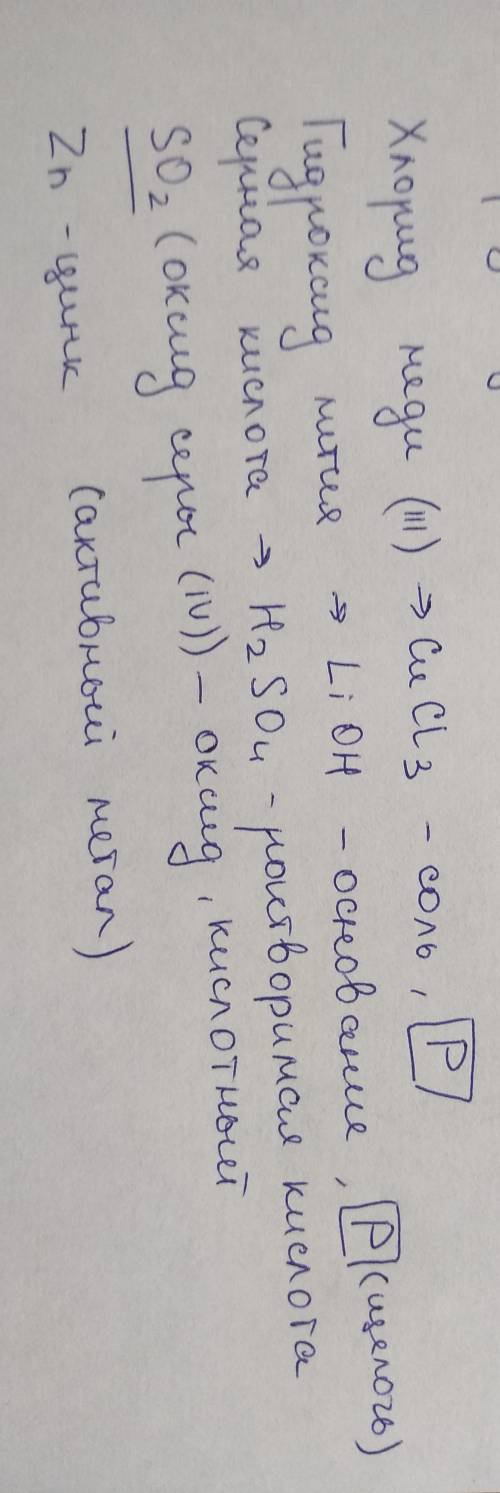 Хлорид меди (III) → CuCl3 - соль, Р
Гидроксид лития → LiOH - основание, Р (щелочь)
Серная кислота → H2SO4 - растворимая кислота
SO2 (оксид серы (IV)) - оксид, кислотный
Zn - цинк (активный метал)